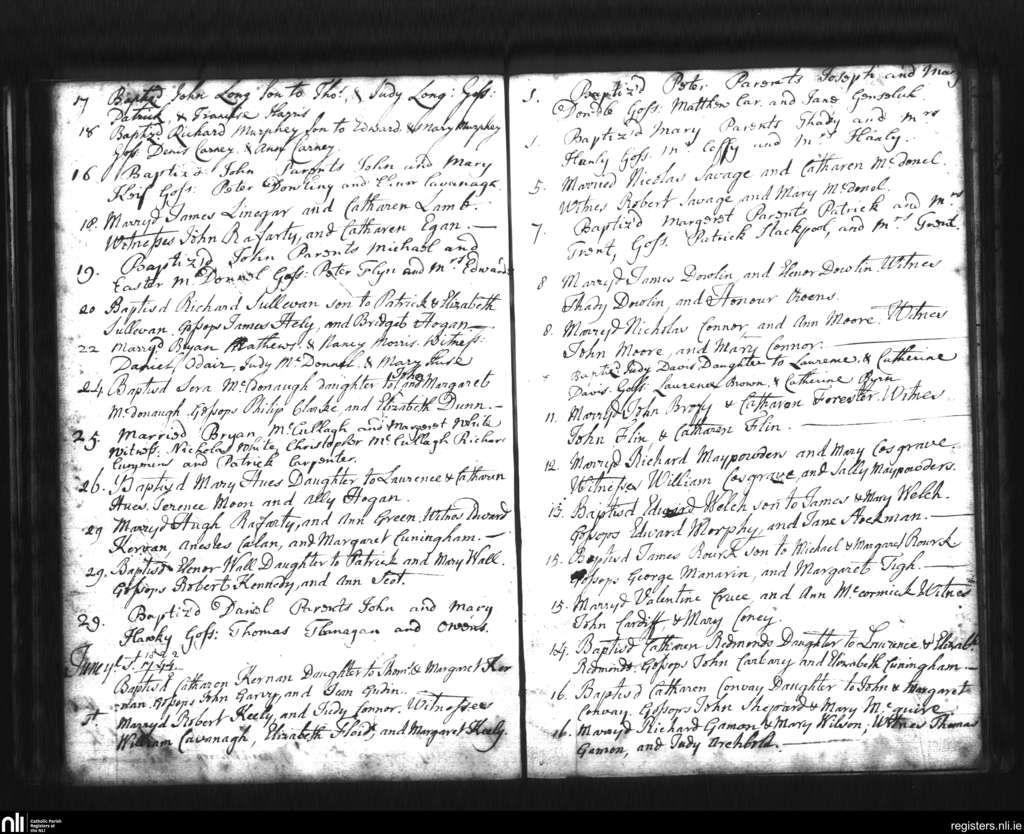 17 Baptiz'd John Long Son to Thos. & Judy Long: Goss:
Patrick, & Frances Harris
18 Baptiz: Richard Murphey Son to Edward & Mary Murphey
Goss: Denis Carney & Ann Carney.
16. Baptiz'd John Parents John and Mary
Goss: Peter Dowling and Elinor Cavanagh.
18. Marryd James Linegar and Catharen Lamb.
Witnesses John Rafarty, and Catharen Egan.
19. Baptiz'd John Parents Michael and
Easter McDonnel Goss: Peter Flyn and Mrs Edwards
20 Baptisd Richard Sullevan son to Patrick & Elizabeth
Sullevan. Gossops James Hely, and Bridget Hogan
22 Marryd Bryan Mathews & Nancy Morris. Witness:
Daniel Adair, Judy McDonnel & Mary
24. Baptisd McDonaugh daughter to John and Margaret
McDonaugh. Gossops Philip Clarke and Elizabeth Dunn.
25. Married Bryan McCullagh and Margaret White
Witness: Nicholas White, Christopher McCullagh Richar
and Patrick Carpenter.
26. Baptisd Mary Aues Daughter to Laurence & Catharen
Aues. Terence Moon and Ally Hogan.
29 Marryd Hugh Rafarty, and Ann Green. Witnes Edward
Kervan, and Margaret Cuningham.
29. Baptisd Elenor Wall Daughter to Patrick and Mary Wall.
Gossops Robert Kennedy, and Ann Scot.
29. Baptiz'd Daniel Parents John and Mary
Goss: Thomas Flanagan and Owens.
June ye 1st. 1744
Baptisd Catharen Kernan Daughter to Thoms. & Margaret Ker
-nan. Gossops John Garvy, and Jean
1st Marryd Robert Keely, and Judy Connor. Witnesses
William Cavanagh, Elizabeth Floid, and Margaret Keely.
5. Baptiz'd Peter Parents Joseph and Mary
Goss: Matthew Car, and Jane
5. Baptiz'd Mary Parents Thady and Mrs
Hanly Goss: Mr Coffy and Mrs Hanly.
5. Married Nicolas Savage and Catharen McDonel.
Witnes Robert Savage and Mary McDonel.
7. Baptiz'd Margaret Parents Patrick and Mrs
Trent, Goss. Patrick Slackpool, and Mrs Trent.
8 Marryd James Dowlin, and Elenor Dowlin. Witnes
Thady Dowlin, and Honour Owens.
8. Marryd Nicholas Connor, and Ann Moore. Witnes
John Moore, and Mary Connor.
Baptiz Judy Davis Daughter to Laurence, & Catherine
Davis. Goss: Laurence Brown, & Catherine Byrn
11. Marryd John Brofy & Catharen Forester. Witnes
John Flin & Catharen Flin.
12. Marryd Richard Maypowders and Mary Cosgrave.
Witnesses William Cosgrave, and Sally Maypowders.
13. Baptisd Edward Welch son to James & Mary Welch.
Gossops Edward Morphy, and Jane Hockman.
15. Baptisd James Rourk son to Michael & Margaret Rourk
Gossops George Manarin, and Margaret Tigh.
15. Marryd Valentine Cruce, and Ann McCormick Witnes
John Cardiff & Mary Coney.
14. Baptisd Catharen Redmonds Daughter to Laurence & Elizab:
Redmonds. Gossops John Carbary and Elizabeth Cuningham
16. Baptisd Catharen Convay Daughter to John & Margaret
Convay. Gossops John Shepard & Mary McGuire
16. Marryd Richard Gamon & Mary Wilson, Witnes Thomas
Gamon, and Judy Archbold.
nli Catholic Parish
Registers at
the NLI
registers.nli.ie